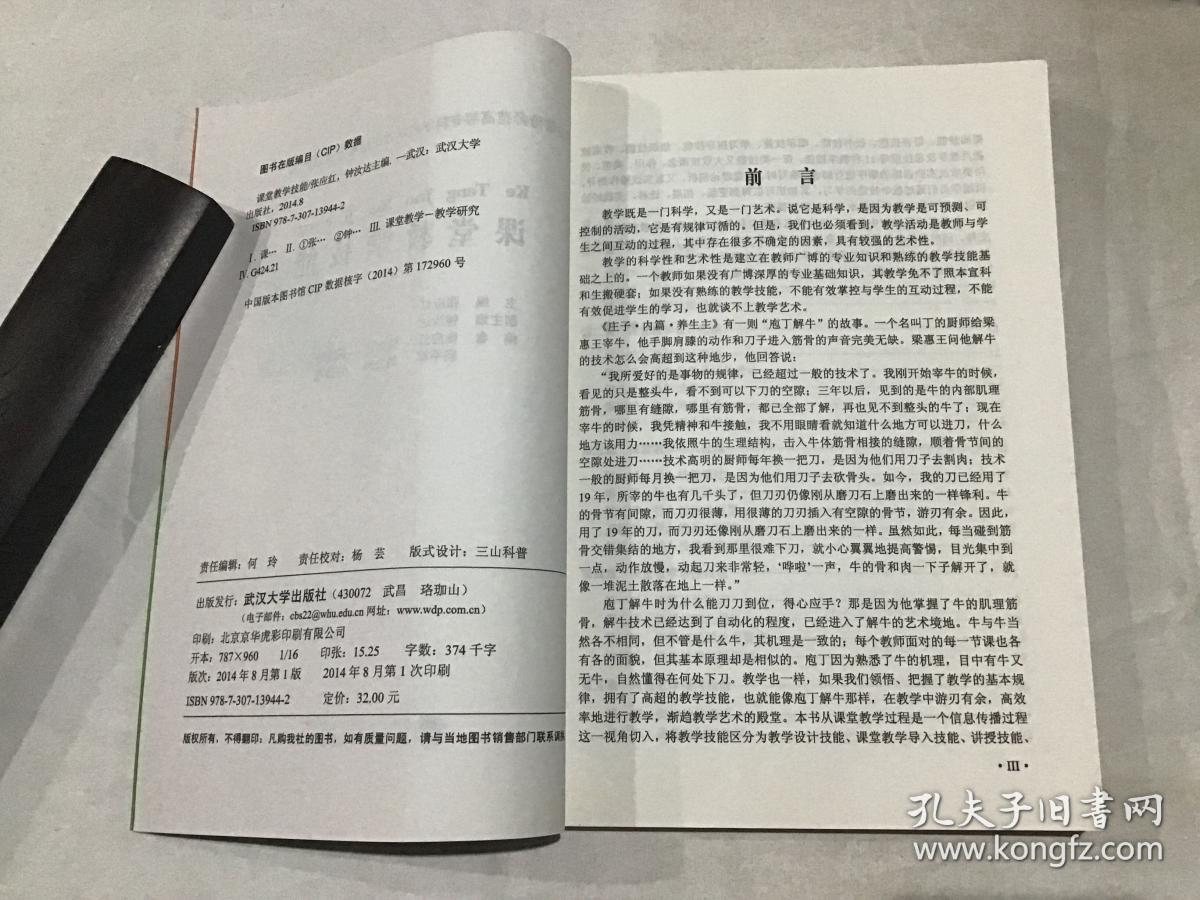 图书在版编目(CIP)数据
课堂教学技能/张应红,钟汝达主编.—武汉:武汉大学
出版社,2014.8
ISBN 978-7-307-13944-2
Ⅰ.课… Ⅱ.①张… ②钟… Ⅲ.课堂教学-教学研究
Ⅳ.G424.21
中国版本图书馆CIP数据核字(2014)第172960号
责任编辑:何 玲 责任校对:杨 芸 版式设计:三山科普
出版发行:武汉大学出版社 (430072 武昌 珞珈山)
(电子邮件:cbs22@whu.edu.cn 网址:www.wdp.com.cn)
印刷:北京京华虎彩印刷有限公司
开本:787×960 1/16 印张:15.25 字数:374千字
版次:2014年8月第1版 2014年8月第1次印刷
ISBN 978-7-307-13944-2 定价:32.00元
版权所有,不得翻印;凡购我社的图书,如有质量问题,请与当地图书销售部门联系
前 言
教学既是一门科学,又是一门艺术。说它是科学,是因为教学是可预测、可
控制的活动,它是有规律可循的。但是,我们也必须看到,教学活动是教师与学
生之间互动的过程,其中存在很多不确定的因素,具有较强的艺术性。
教学的科学性和艺术性是建立在教师广博的专业知识和熟练的教学技能基
础之上的。一个教师如果没有广博深厚的专业基础知识,其教学免不了照本宣科
和生搬硬套;如果没有熟练的教学技能,不能有效掌控与学生的互动过程,不能
有效促进学生的学习,也就谈不上教学艺术。
《庄子·内篇·养生主》有一则“庖丁解牛”的故事。一个名叫丁的厨师给梁
惠王宰牛,他手脚肩膝的动作和刀子进入筋骨的声音完美无缺。梁惠王问他解牛
的技术怎么会高超到这种地步,他回答说:
“我所爱好的是事物的规律,已经超过一般的技术了。我刚开始宰牛的时候,
看见的只是整头牛,看不到可以下刀的空隙;三年以后,见到的是牛的内部肌理
筋骨,哪里有缝隙,哪里有筋骨,都已全部了解,再也见不到整头的牛了;现在
宰牛的时候,我凭精神和牛接触,我不用眼睛看就知道什么地方可以进刀,什么
地方该用力……我依照牛的生理结构,击入牛体筋骨相接的缝隙,顺着骨节间的
空隙处进刀……技术高明的厨师每年换一把刀,是因为他们用刀子去割肉;技术
一般的厨师每月换一把刀,是因为他们用刀子去砍骨头。如今,我的刀已经用了
19年,所宰的牛也有几千头了,但刀刃仍像刚从磨刀石上磨出来的一样锋利。牛
的骨节有间隙,而刀刃很薄,用很薄的刀刃插入有空隙的骨节,游刃有余。因此,
用了19年的刀,而刀刃还像刚从磨刀石上磨出来的一样。虽然如此,每当碰到筋
骨交错集结的地方,我看到那里很难下刀,就小心翼翼地提高警惕,目光集中到
一点,动作放慢,动起刀来非常轻,‘哗啦’一声,牛的骨和肉一下子解开了,就
像一堆泥土散落在地上一样。”
庖丁解牛时为什么能刀刀到位,得心应手?那是因为他掌握了牛的肌理筋
骨,解牛技术已经达到了自动化的程度,已经进入了解牛的艺术境地。牛与牛当
然各不相同,但不管是什么牛,其机理是一致的;每个教师面对的每一节课也各
有各的面貌,但其基本原理却是相似的。庖丁因为熟悉了牛的机理,目中有牛又
无牛,自然懂得在何处下刀。教学也一样,如果我们领悟、把握了教学的基本规
律,拥有了高超的教学技能,也就能像庖丁解牛那样,在教学中游刃有余,高效
率地进行教学,渐趋教学艺术的殿堂。本书从课堂教学过程是一个信息传播过程
这一视角切入,将教学技能区分为教学设计技能、课堂教学导入技能、讲授技能、
·Ⅲ·
孔夫子旧书网
www.kongfz.com